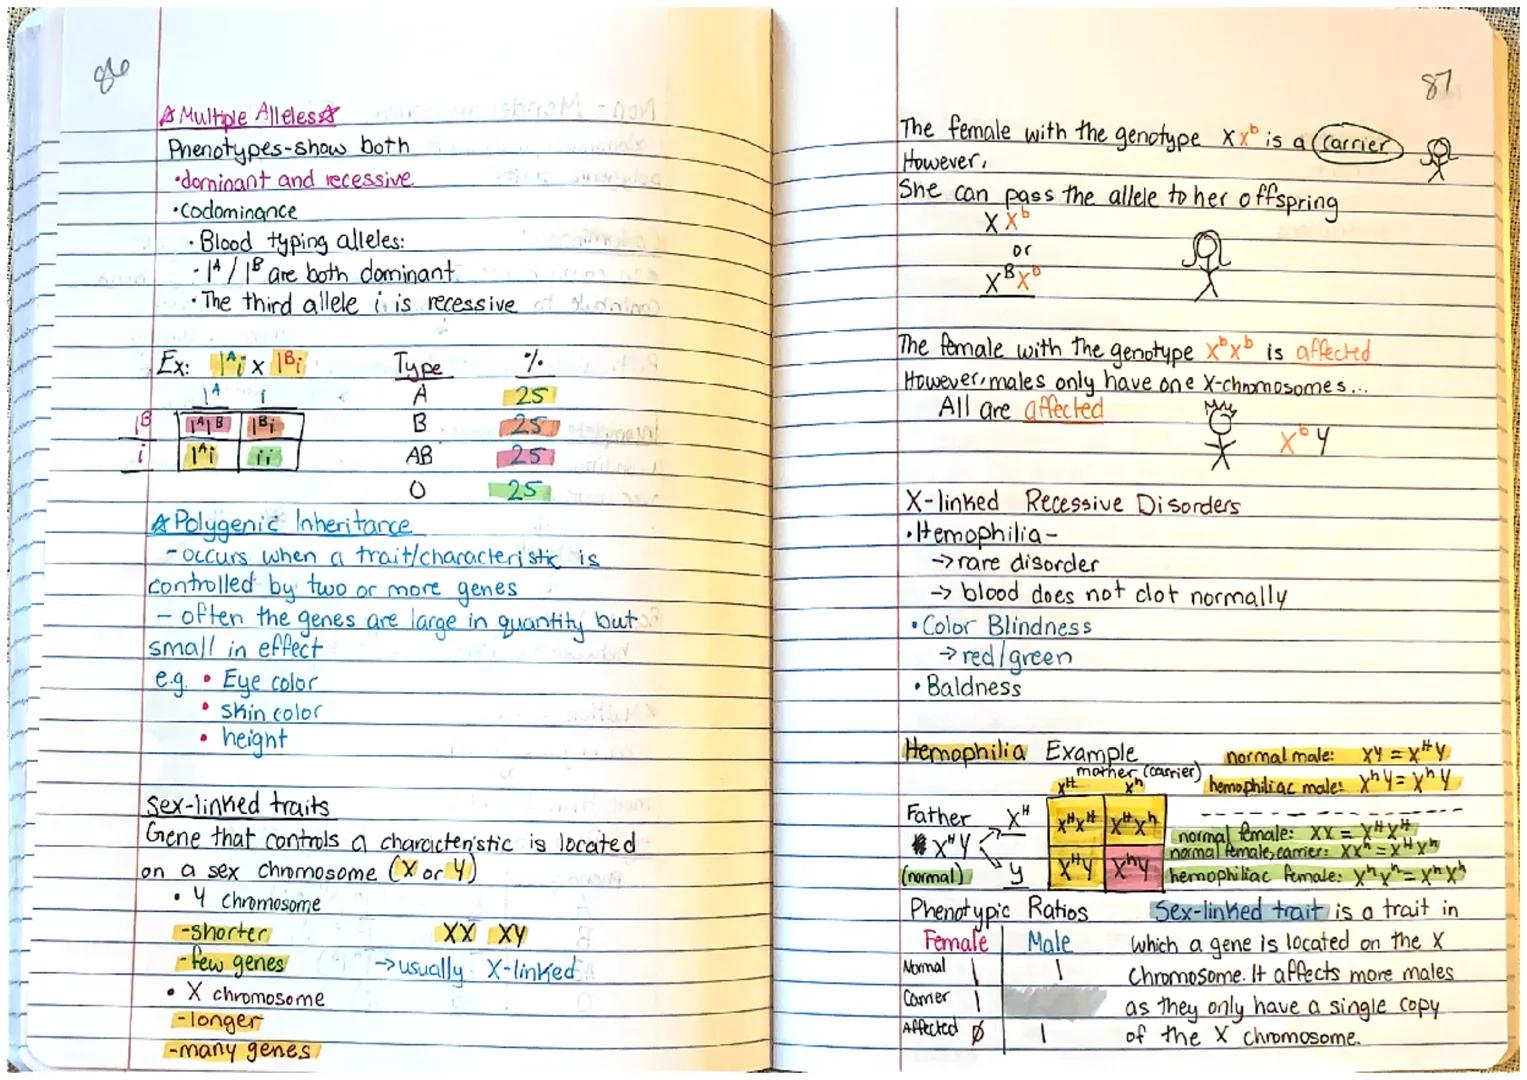 86
☆Multiple Alleles☆
Phenotypes-show both
•dominant and recessive
•Codominance
•Blood typing alleles:
- Iᴬ / Iᴮ are both dominant.
•The third allele i, is recessive
Ex: Iᴬi x Iᴮi
Iᴬ i
Iᴮ IᴬIᴮ Iᴮi
i Iᴬi ii
Type %
A 25
B 25
AB 25
O 25
☆Polygenic Inheritance
-occurs when a trait/characteristic is
controlled by two or more genes
- often the genes are large in quantity but
small in effect
e.g. • Eye color
• skin color
• height
Sex-linked traits
Gene that controls a characteristic is located
on a sex chromosome (X or Y)
• Y chromosome
-shorter XX XY
-few genes →usually X-linked
• X chromosome
-longer
-many genes
87
The female with the genotype X Xᵇ is a carrier
However,
She can pass the allele to her offspring
X Xᵇ
or
XᴮXᵇ
The female with the genotype XᵇXᵇ is affected
However, males only have one X-chromosomes...
All are affected
XᵇY
X-linked Recessive Disorders
•Hemophilia-
→rare disorder
→ blood does not clot normally
•Color Blindness
→red/green
•Baldness
Hemophilia Example
normal male: XY = XᴴY
mother (carrier)
hemophiliac male: XʰY = XʰY
Xᴴ Xʰ
Father Xᴴ XᴴXᴴ XᴴXʰ
XᴴY
(normal) Y XᴴY XʰY
normal female: XX = XᴴXᴴ
normal female, carrier: XXʰ = XᴴXʰ
hemophiliac female: XʰXʰ = XʰXʰ
Phenotypic Ratios
Female Male
Normal | |
Carrier |
Affected Ø |
Sex-linked trait is a trait in
which a gene is located on the X
Chromosome. It affects more males
as they only have a single copy
of the X chromosome.